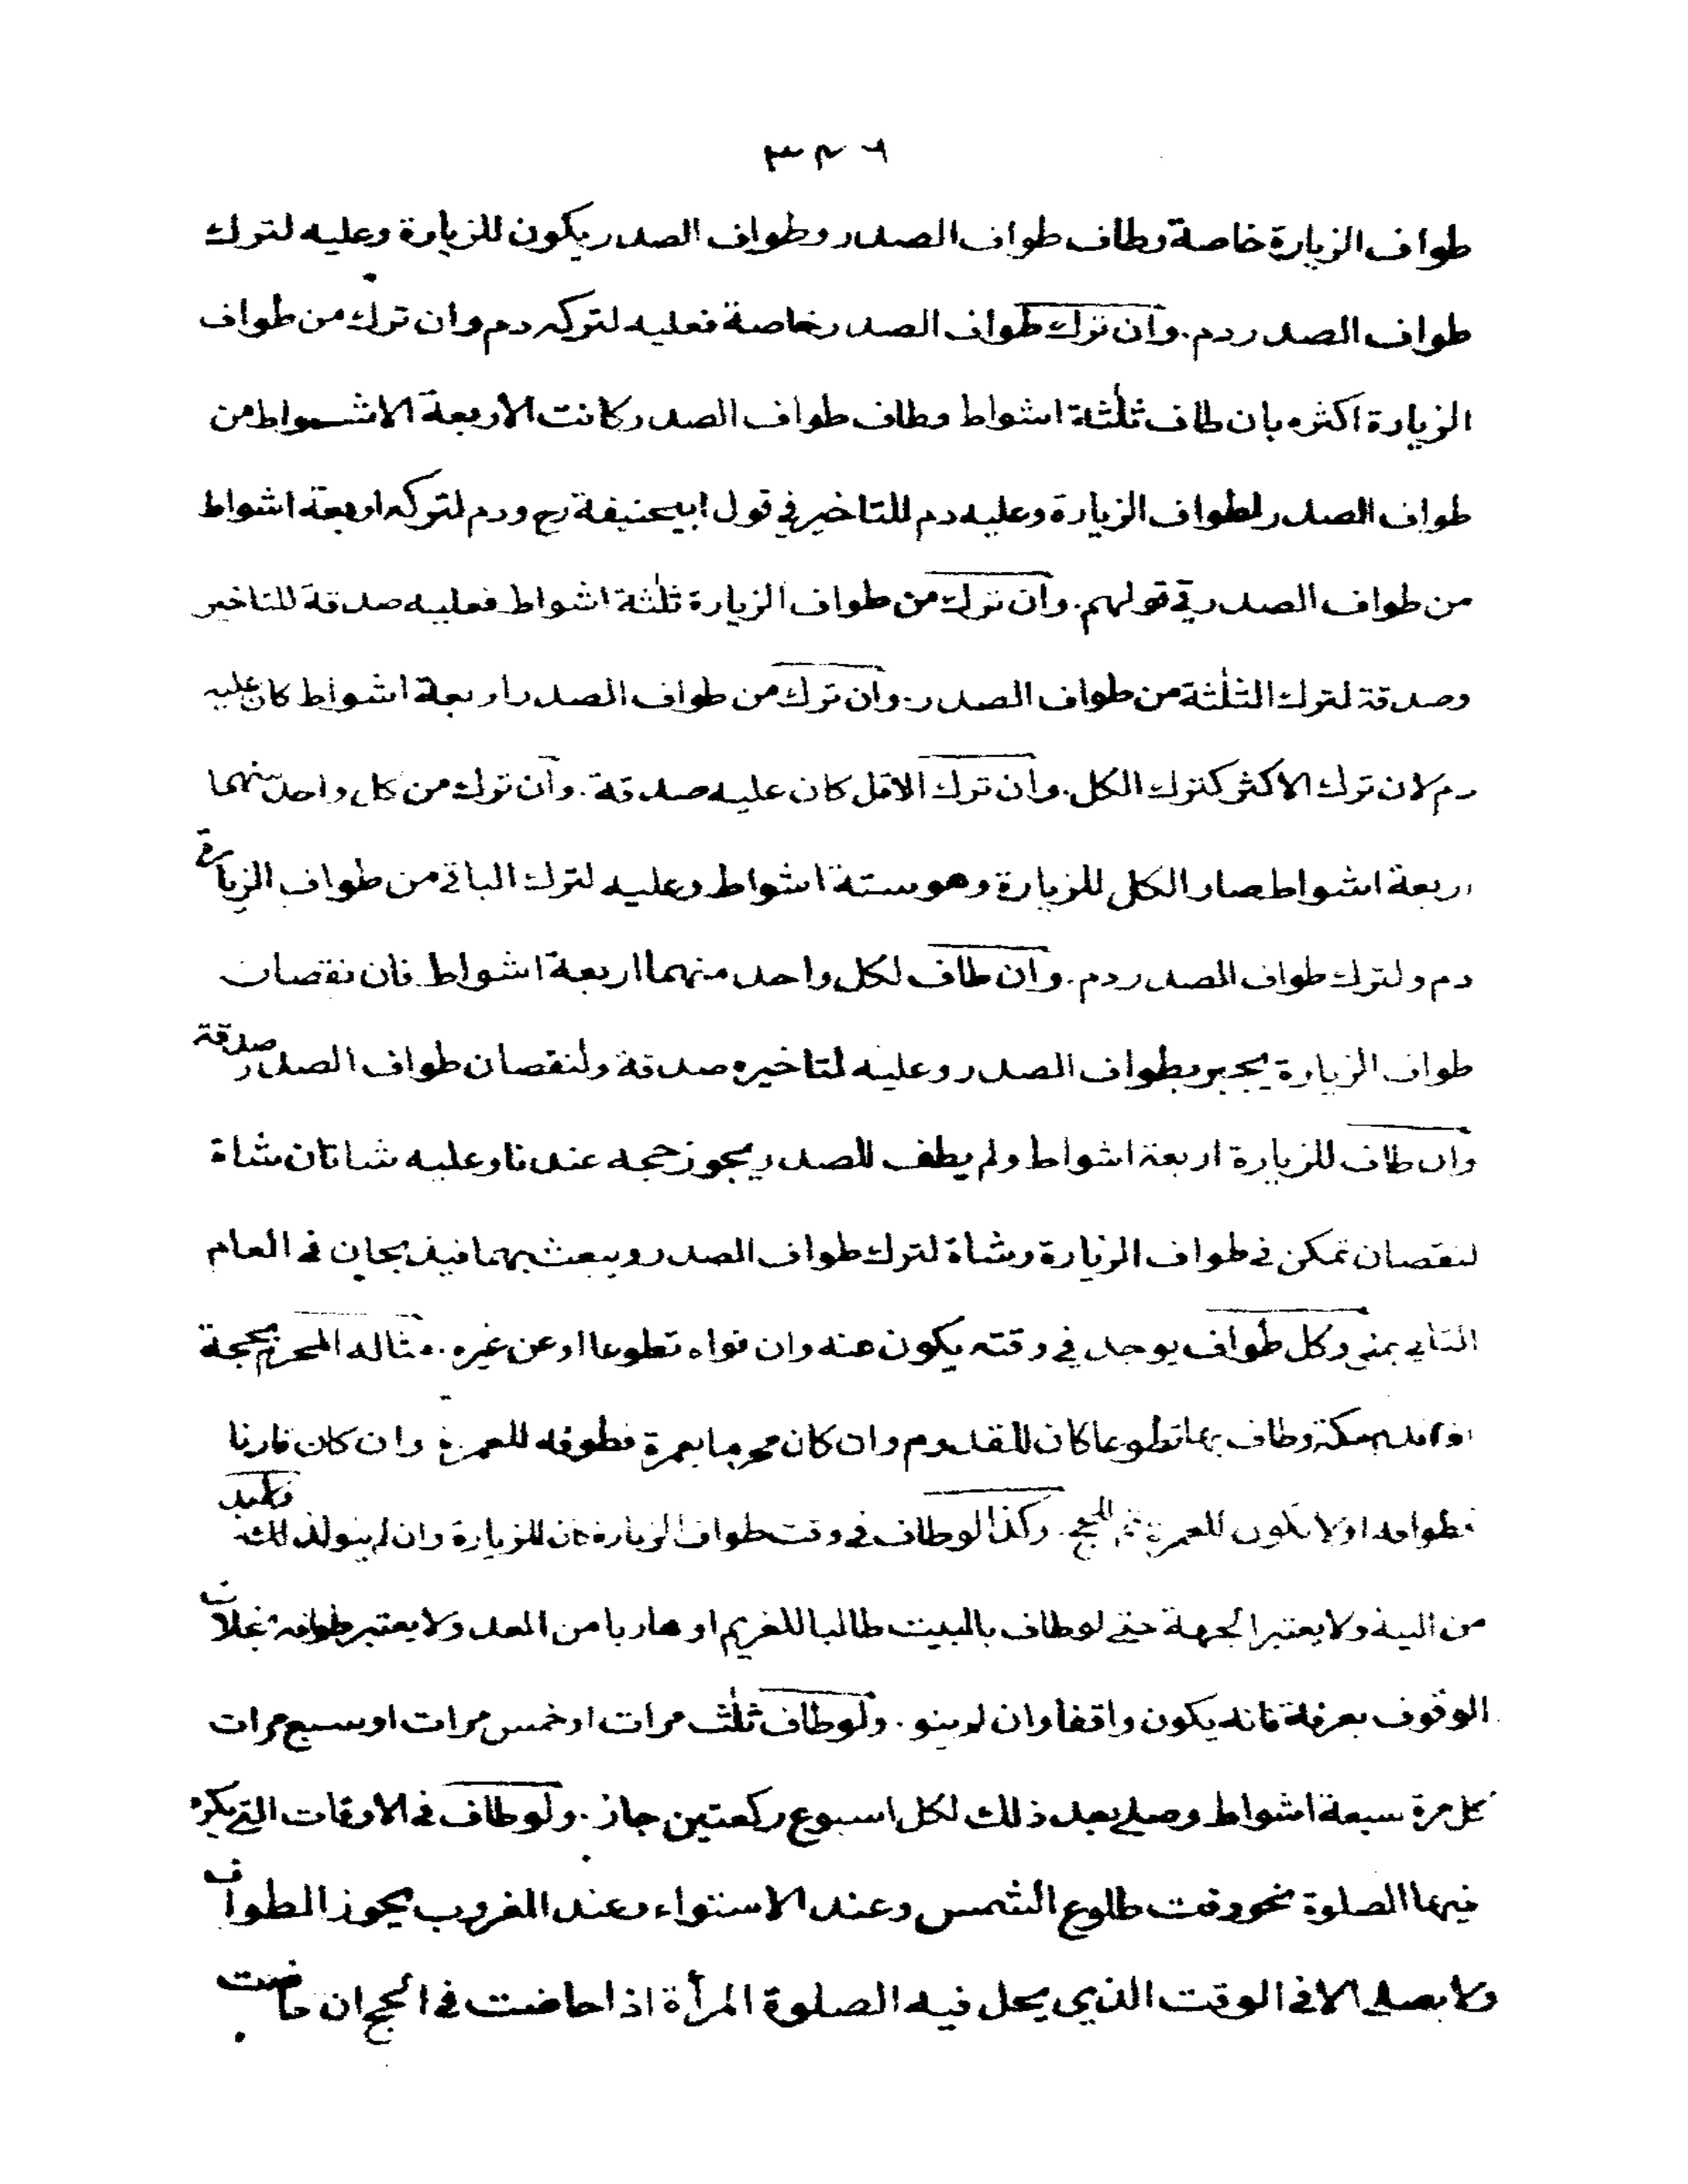 ٣٤٦
طواف الزيارة خاصة وطاف طواف الصدر وطواف الصدر يكون للزيارة وعليه لترك
طواف الصدر دم. وان ترك طواف الصدر خاصة فعليه لتركه دم وان ترك من طواف
الزيارة اكثره بان طاف ثلثة اشواط وطاف طواف الصدر كانت الاربعة الاشواط من
طواف الصدر لطواف الزيارة وعليه دم للتاخير في قول ابيحنيفة رح ودم لتركه اربعة اشواط
من طواف الصدر في قولهم. وان ترك من طواف الزيارة ثلثة اشواط فعليه صدقة للتاخير
وصدقة لترك الثلثة من طواف الصدر. وان ترك من طواف الصدر اربعة اشواط كان عليه
دم لان ترك الاكثر كترك الكل. وان ترك الاقل كان عليه صدقة. وان ترك من كل واحد منهما
اربعة اشواط صار الكل للزيارة وهو ستة اشواط وعليه لترك الباقي من طواف الزيارة
دم ولترك طواف الصدر دم. وان طاف لكل واحد منهما اربعة اشواط فان نقصان
طواف الزيارة يجبر بطواف الصدر وعليه لتاخيره صدقة ولنقصان طواف الصدر صدقة
وان طاف للزيارة اربعة اشواط ولم يطف للصدر يجوز حجه عندنا وعليه شاتان شاة
لنقصان تمكن في طواف الزيارة وشاة لترك طواف الصدر ويبعث بهما فيذبحان في العام
الثاني بمنى وكل طواف يوجد في وقته يكون عنه وان نواه تطوعا او عن غيره. مثاله المحرم بحجة
اذا قدم مكة وطاف بها تطوعا كان للقدوم وان كان محرما بعمرة فطوفه للعمرة وان كان قارنا
فطوافه اولا يكون للعمرة ثم للحج. وكذا لو طاف في وقت طواف الزيارة كان للزيارة وان لم ينو لذلك
من النية ولا يعتبر الجهة حتى لو طاف بالبيت طالبا للغريم او هاربا من العدو لا يعتبر طوافه بخلاف
الوقوف بعرفة فانه يكون واقفا وان لم ينو. ولو طاف ثلث مرات او خمس مرات او سبع مرات
كل مرة سبعة اشواط وصلى بعد ذلك لكل اسبوع ركعتين جاز. ولو طاف في الاوقات التي يكره
فيها الصلوة نحو وقت طلوع الشمس وعند الاستواء وعند الغروب يجوز الطواف
ولا يصلي الا في الوقت الذي يحل فيه الصلوة المرأة اذا حاضت في الحج ان حاضت